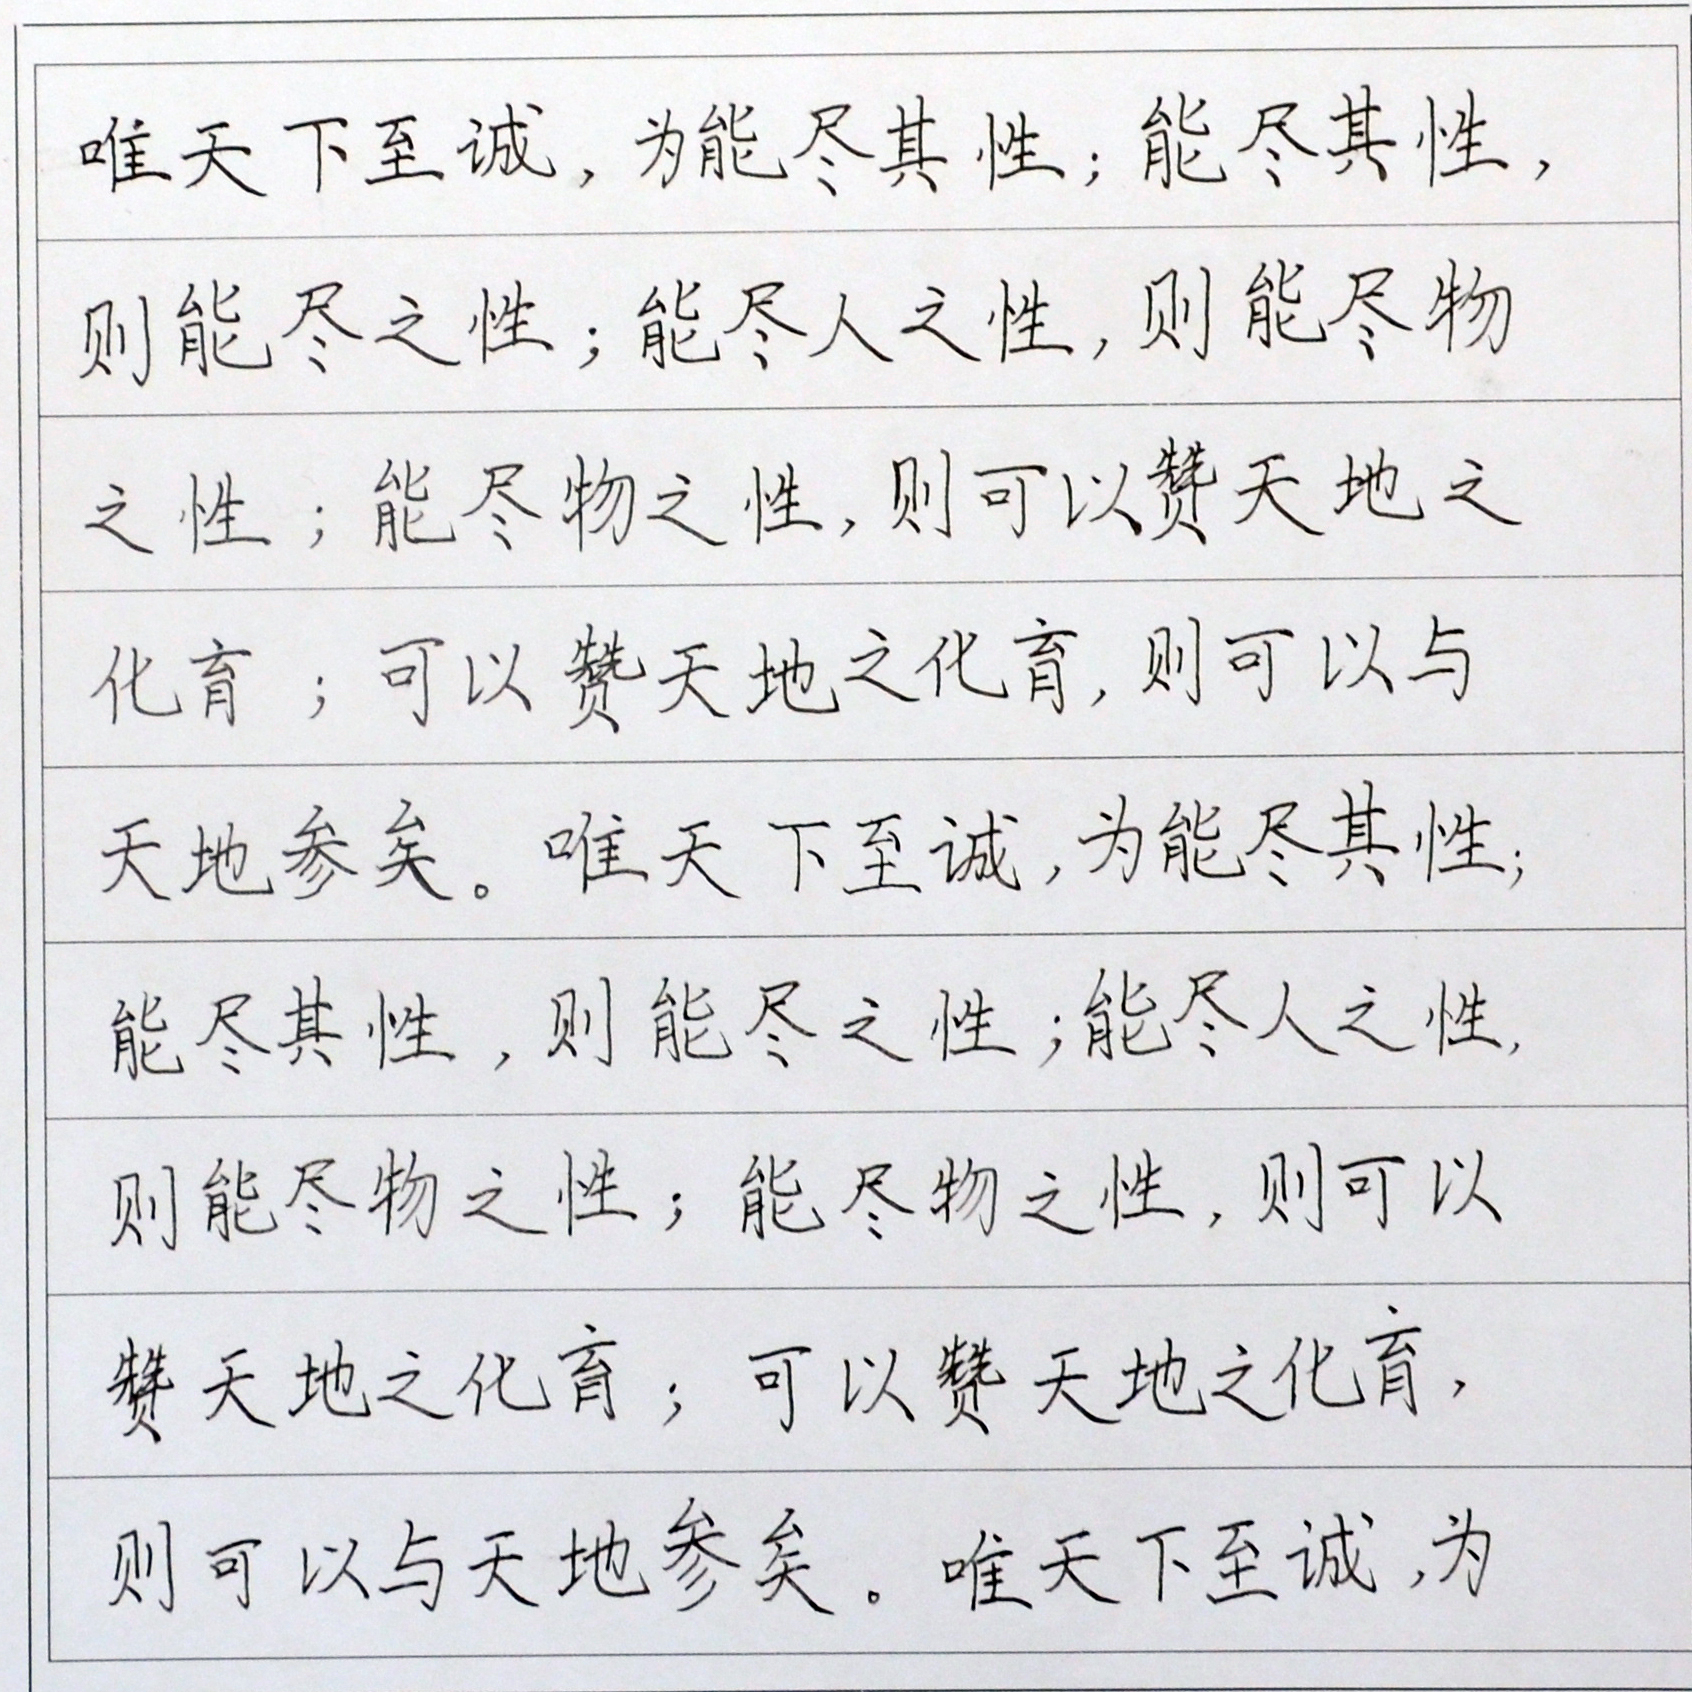 唯天下至诚，为能尽其性；能尽其性，
则能尽之性；能尽人之性，则能尽物
之性；能尽物之性，则可以赞天地之
化育；可以赞天地之化育，则可以与
天地参矣。唯天下至诚，为能尽其性；
能尽其性，则能尽之性；能尽人之性，
则能尽物之性；能尽物之性，则可以
赞天地之化育；可以赞天地之化育，
则可以与天地参矣。唯天下至诚，为